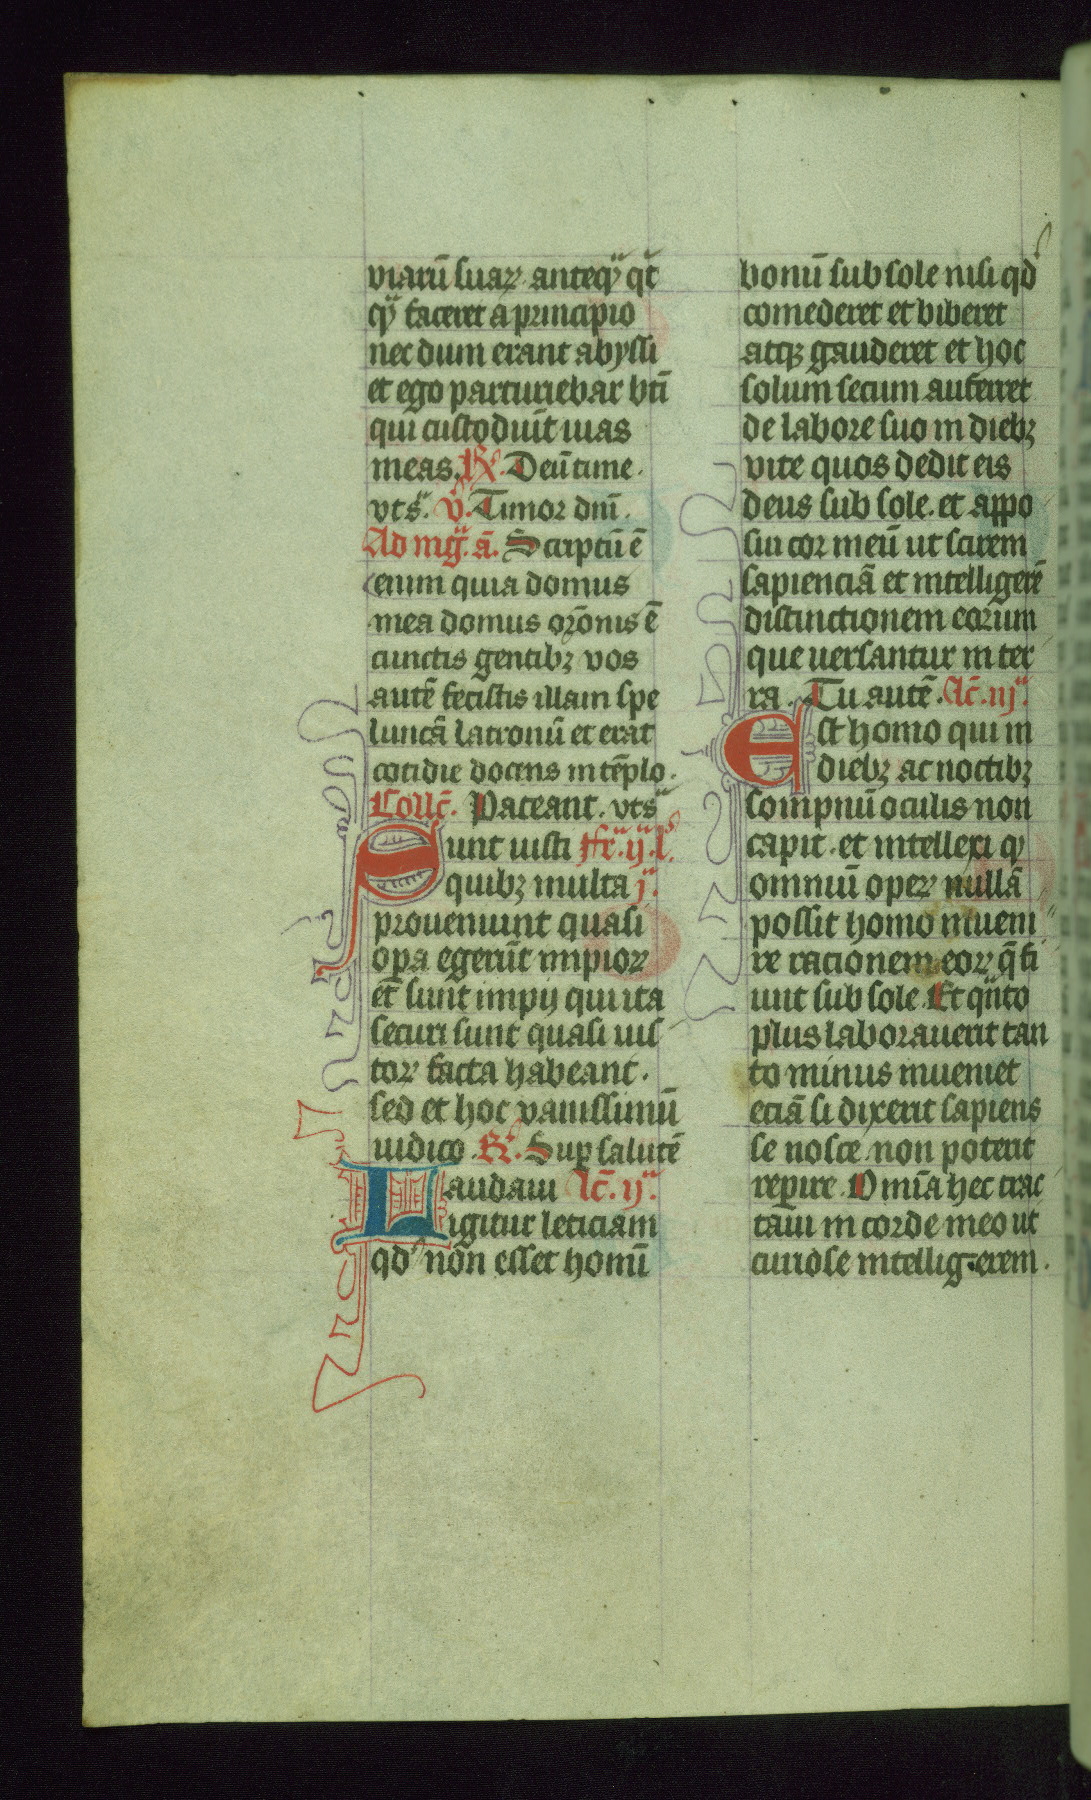 viarū suaꝝ anteqͣ qͥc
qͣ faceret a principio
nec dum erant abyssi
et ego parturiebar bti
qui custodiūt uias
meas. ℟. Deū time.
vts͛. ℣. Timor dnī.
Ad mgͣ. ā. Scriptū ē
enim quia domus
mea domus orōnis ē
cunctis gentibꝫ vos
autē fecistis illam spe
luncā latronū et erat
cotidie docens in tēplo.
Collc̄. Pateant. vts͛
Sunt iusti Fr͛. ij. l͛.
quibꝫ multa j͛.
proueniunt quasi
opa egerūt impioꝝ
et sunt impij qui ita
securi sunt quasi ius
toꝝ facta habeant.
sed et hoc vanissimū
iudico. ℟. Sup salutē
Laudaui Lc̄. ij͛.
igitur leticiam
qd non esset homī
bonū sub sole nisi qd
comederet et biberet
atqꝫ gauderet et hoc
solum secum auferret
de labore suo in diebꝫ
vite quos dedit eis
deus sub sole. et appo
sui cor meū ut scirem
sapienciā et intelligerē
distinctionem eorum
que uersantur in ter
ra. Tu autē. Lc̄. iij͛.
Est homo qui in
diebꝫ ac noctibꝫ
sompnū oculis non
capit. et intellexi qͥ
omniū opeꝝ nullā
possit homo inueni
re racionem eoꝝ q̄ fi
unt sub sole. Et qͣnto
plus laborauerit tan
to minus inueniet
eciā si dixerit sapiens
se nosce non poterit
repire. Omīa hec trac
taui in corde meo ut
curiose intelligerem.